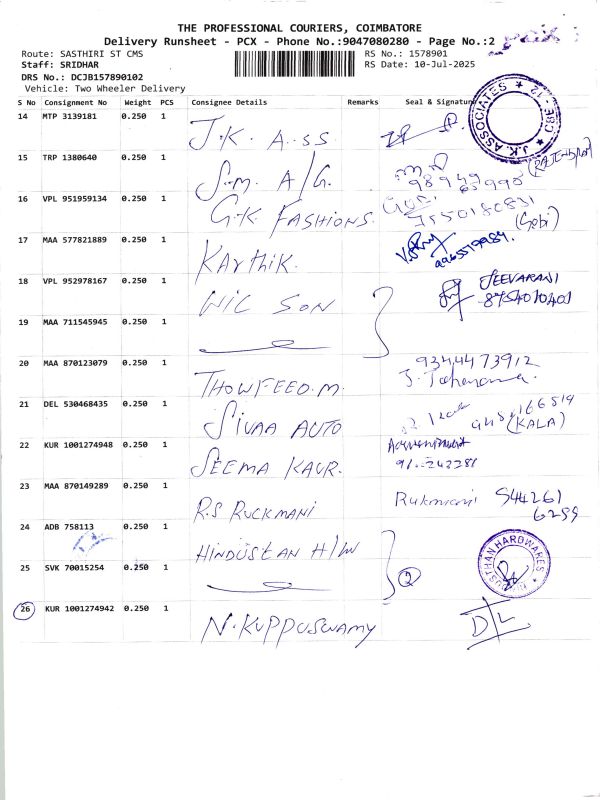 THE PROFESSIONAL COURIERS, COIMBATORE
Delivery Runsheet - PCX - Phone No.:9047080280 - Page No.:2
Route: SASTHIRI ST CMS
RS No.: 1578901
Staff: SRIDHAR
RS Date: 10-Jul-2025
DRS No.: DCJB157890102
Vehicle: Two Wheeler Delivery
S No Consignment No Weight PCS Consignee Details Remarks Seal & Signature
14 MTP 3139181 0.250 1 J.K. Ass
J.K ASSOCIATES * CBE-12 *
15 TRP 1380640 0.250 1 S.M. A/G.
16 VPL 951959134 0.250 1 G.K. FASHIONS. (Gobi)
17 MAA 577821889 0.250 1 KArthiK.
18 VPL 952978167 0.250 1 WIL SON JEEVARANI
19 MAA 711545945 0.250 1
20 MAA 870123079 0.250 1 THOWFEEQ.M. 9344473912
21 DEL 530468435 0.250 1 SIVAA AUTO (KALA)
22 KUR 1001274948 0.250 1 SEEMA KAUR.
23 MAA 870149289 0.250 1 R.S RUCKMANI Rukmani 944261
6299
24 ADB 758113 0.250 1 HINDUSTAN H/W
HINDUSTHAN HARDWARES
25 SVK 70015254 0.250 1 2
26 KUR 1001274942 0.250 1 N.KUPPUSWAMY D/L